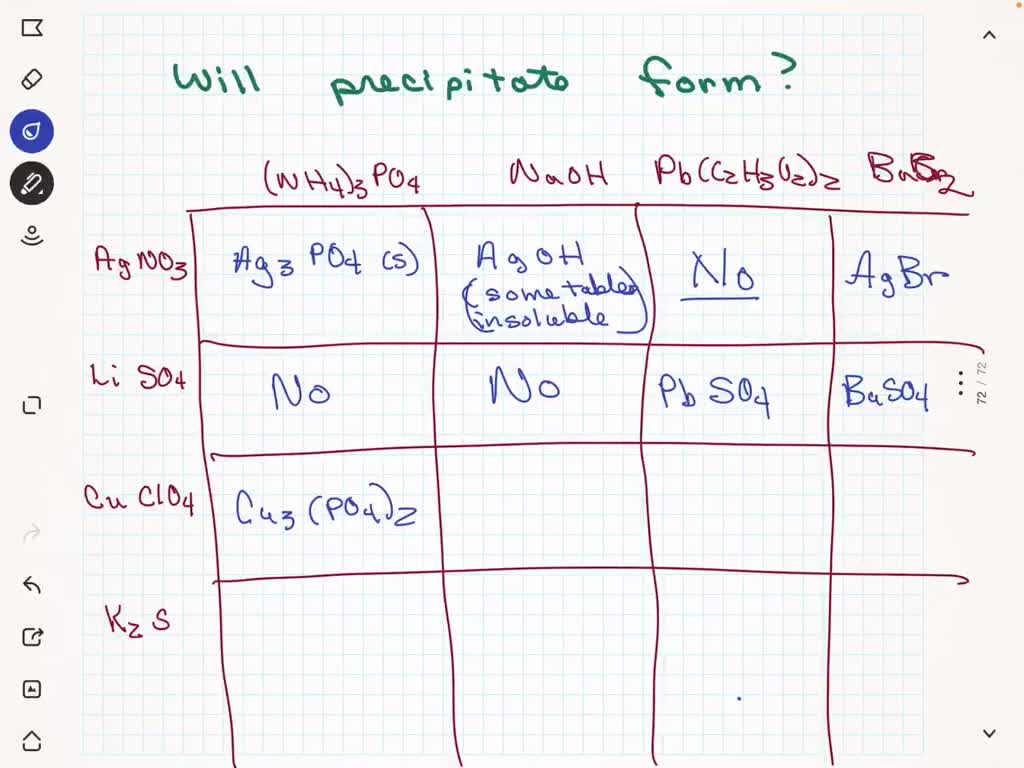 Will precipitate form?
(NH4)3PO4 NaOH Pb(C2H3O2)2 BaBr2
AgNO3 Ag3 PO4 (s) AgOH No AgBr
(some tables
insoluble)
Li SO4 No No Pb SO4 BaSO4
72 / 72
Cu ClO4 Cu3 (PO4)2
K2 S